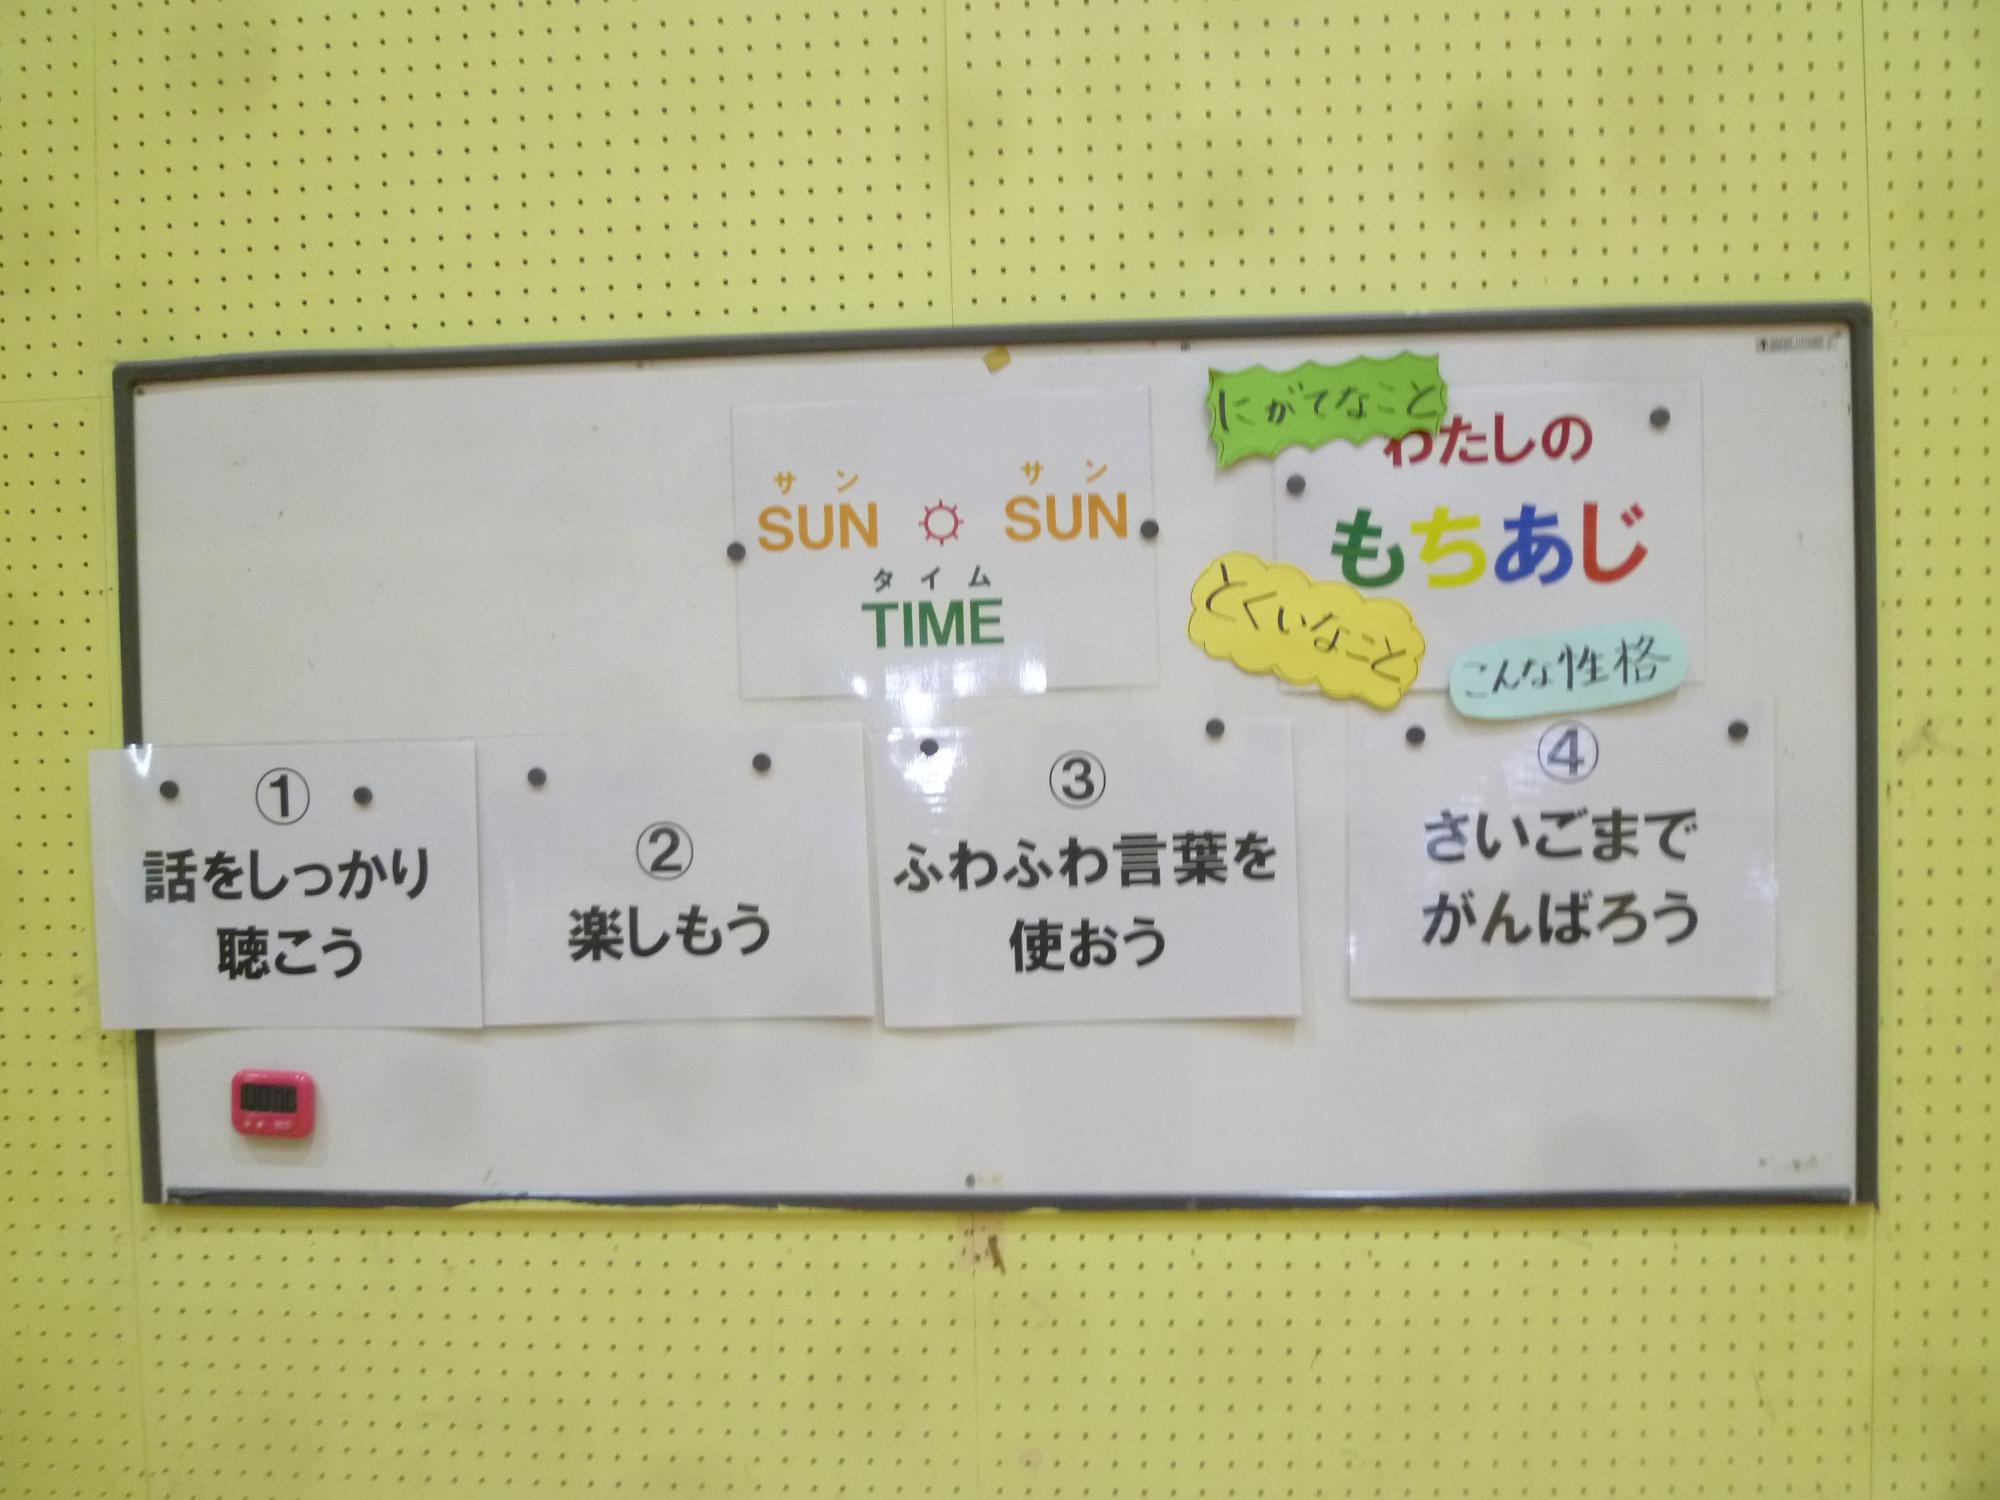 サン サン
SUN SUN
タイム
TIME
にがてなこと
わたしの
もちあじ
とくいなこと
こんな性格
①
話をしっかり
聴こう
②
楽しもう
③
ふわふわ言葉を
使おう
④
さいごまで
がんばろう